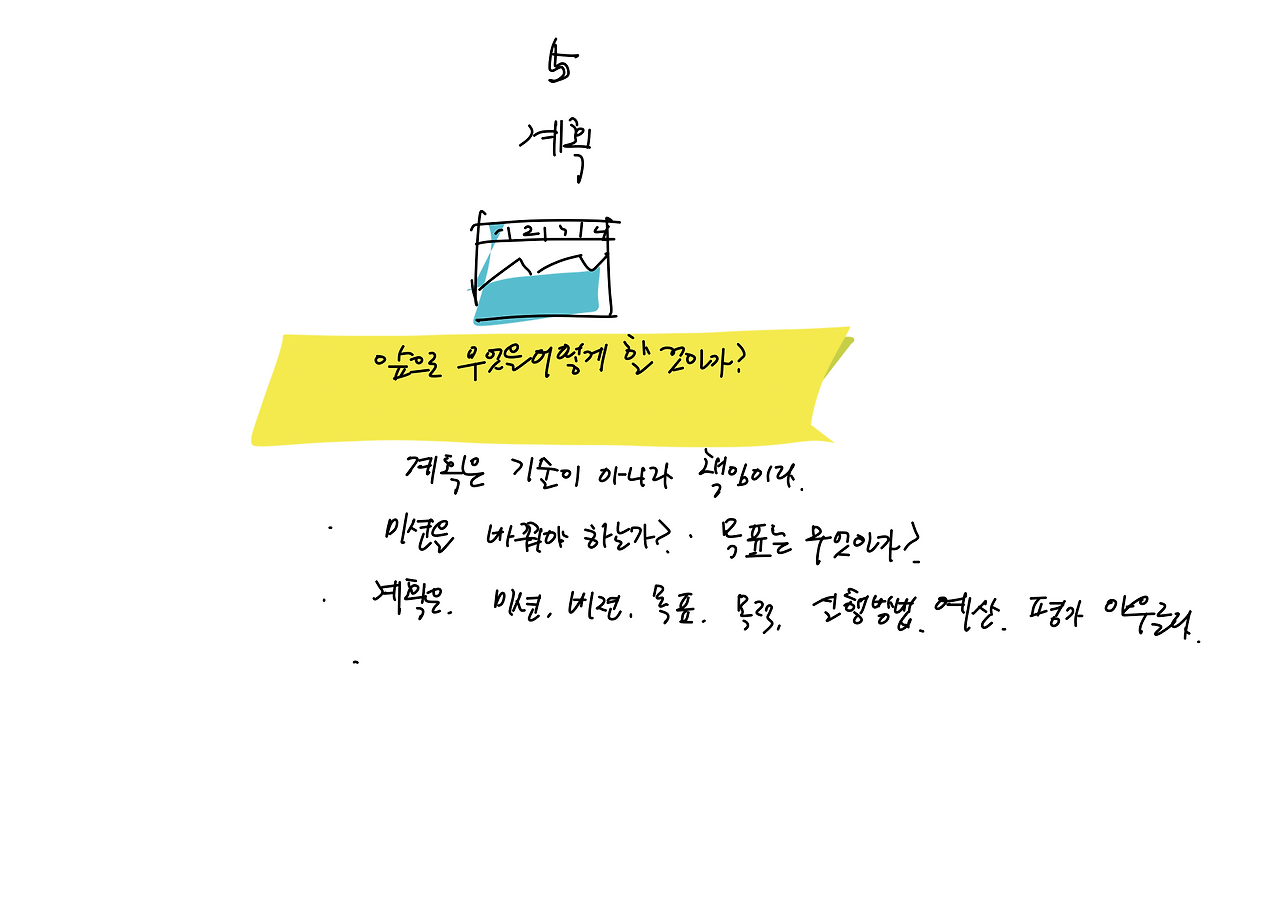 5
계획
1 2 3 4
앞으로 무엇을 어떻게 할 것인가?
계획은 기준이 아니라 책임이다.
· 미션을 바꿔야 하는가? · 목표는 무엇인가?
· 계획은. 미션. 비젼. 목표. 목적. 실행방법. 예산. 평가 아우른다.
·